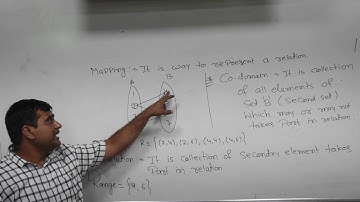 Mapping :- It is way to represent a relation.
A B
R = {(2,4), (2,6), (4,4), (4,6)}
Relation :- It is collection of secondry element takes
Part in relation
Range = {4, 6}
* Co-domain :- It is collection
of all elements of
Set B (second set)
which may or may not
takes Part in relation